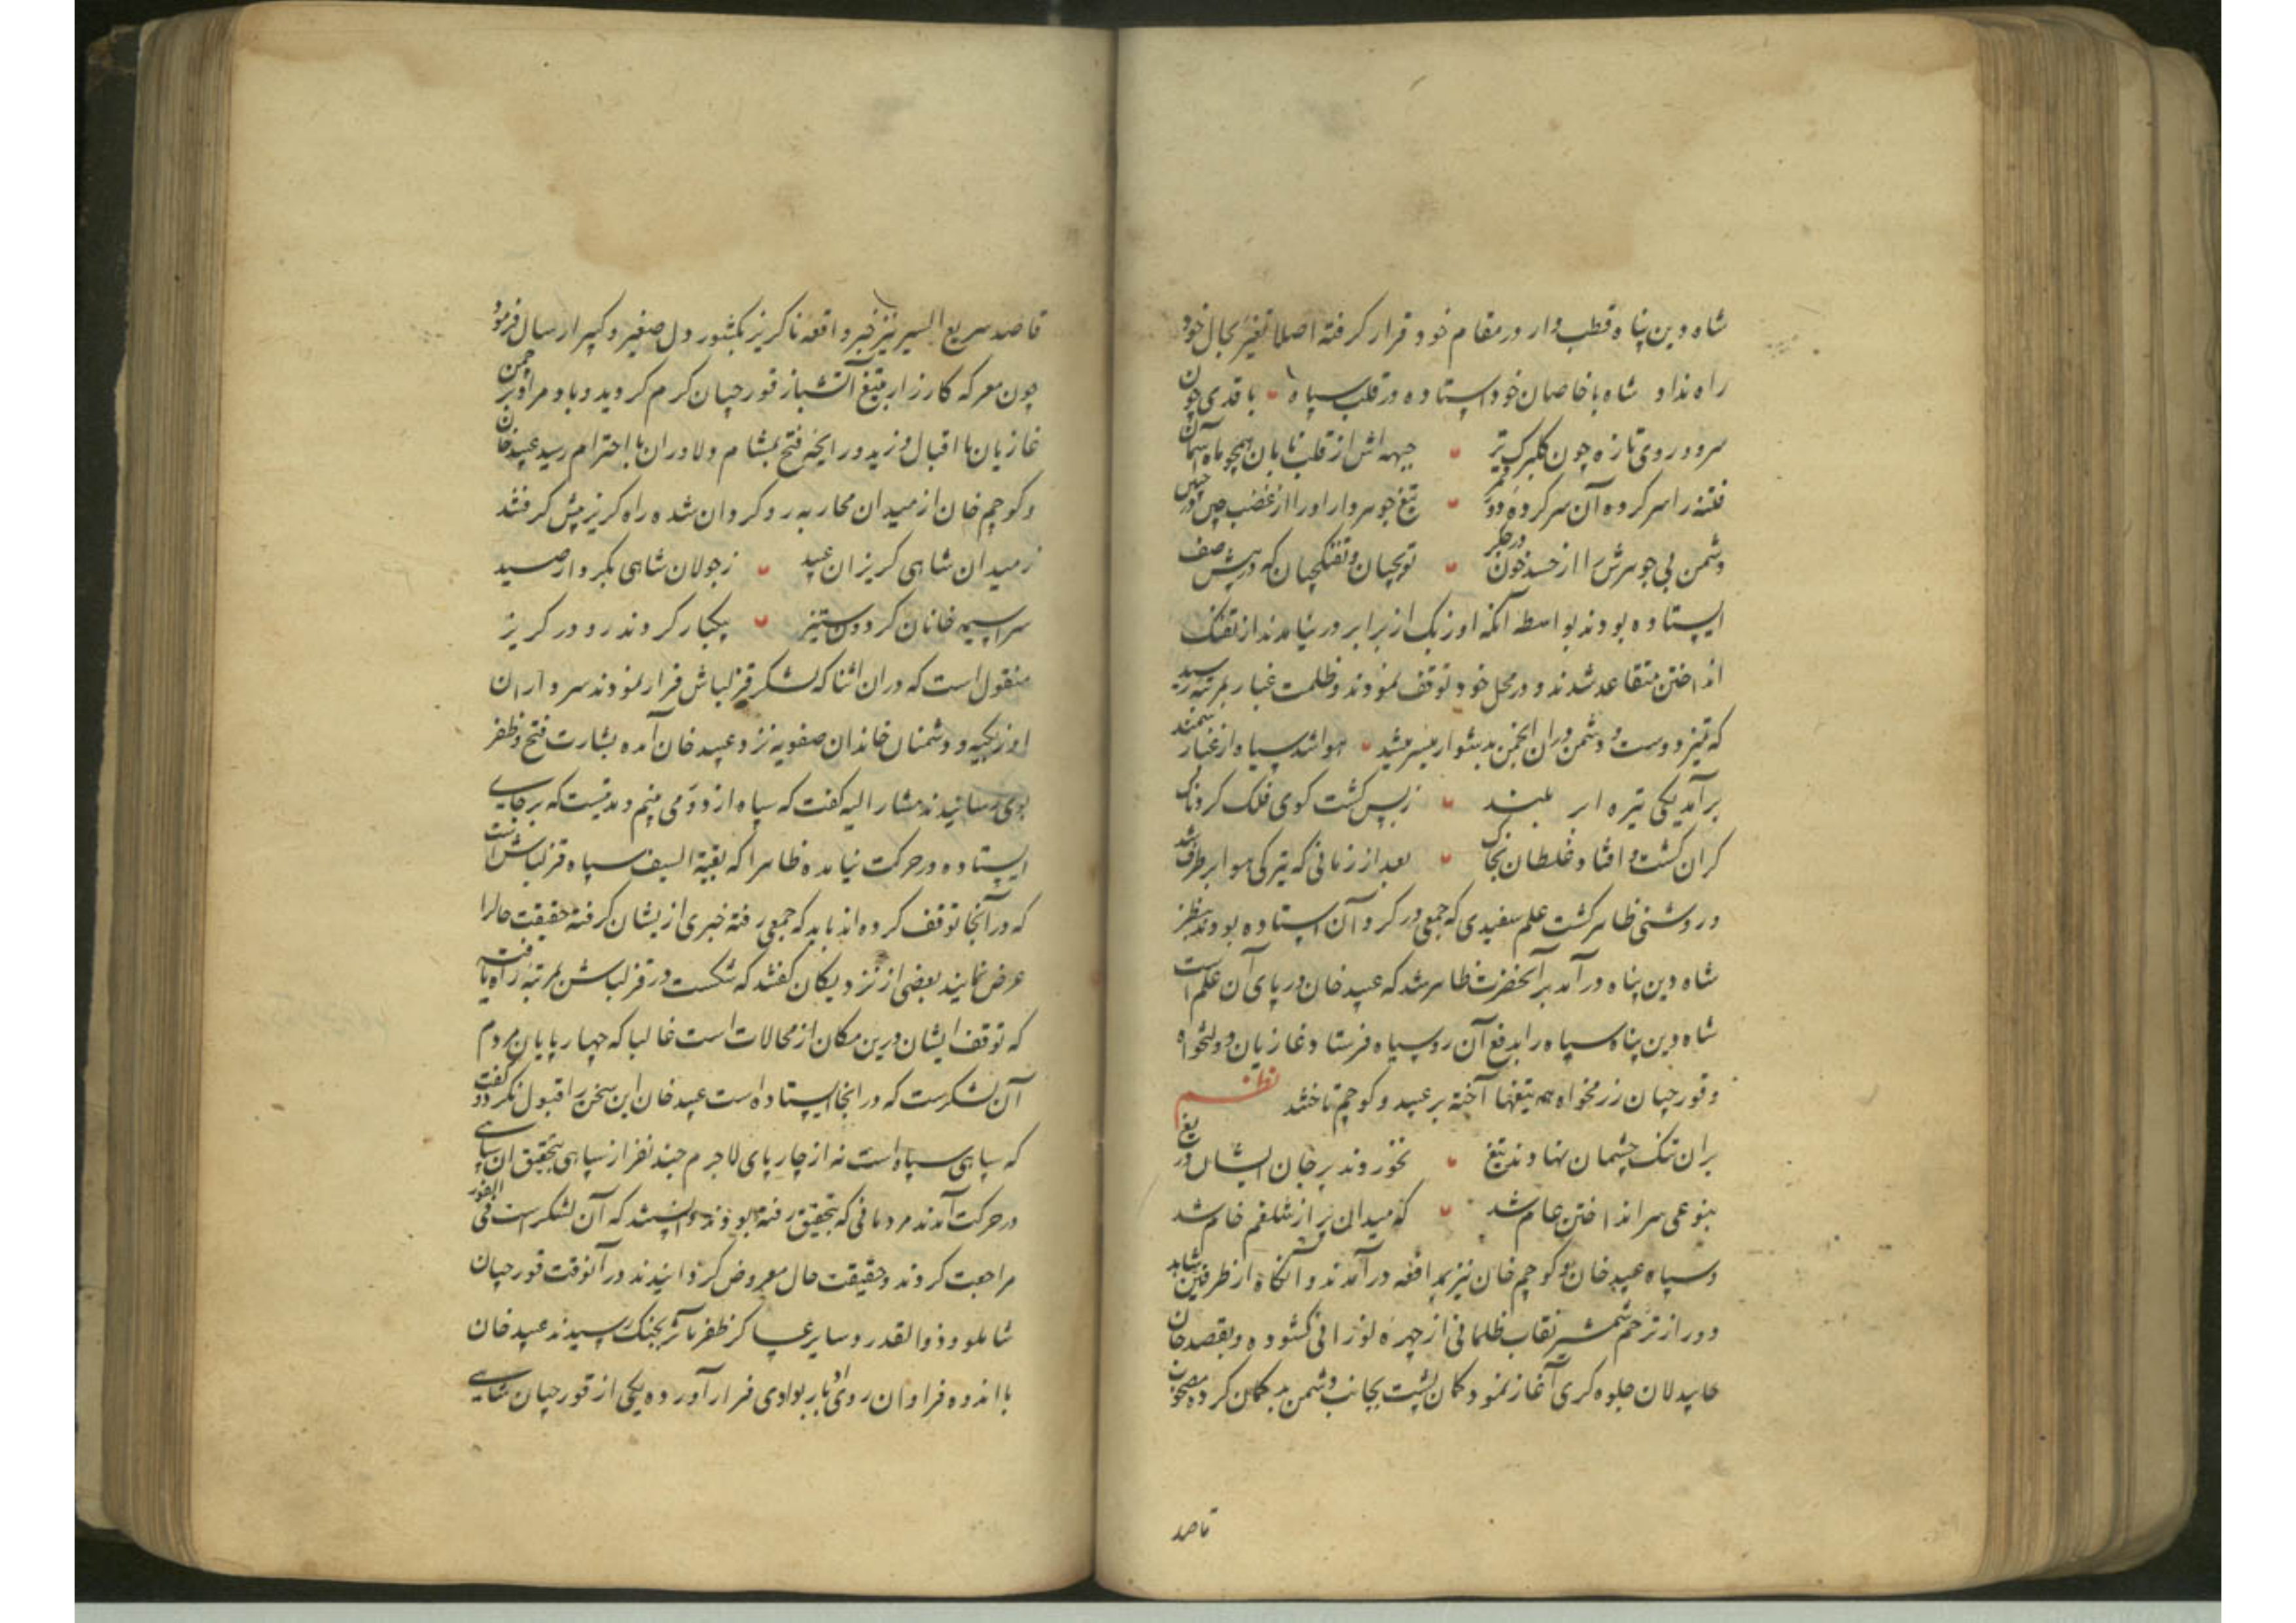 شاه دین پناه قطب وار در مقام خود قرار کرفته اصلا تغیر بحال خود
راه نداد شاه با خاصان خود استاده در قلب سپاه با قدی چون
سرو و روی تازه چون کلبرک تر جبهه اش از قلب تابان همچو ماه آسمان
فتنه را سر کرده آن سر کرده دور قمر تیغ جوهر دار او را از غضب چین در جبین
دشمن بی جوهرش را از حسد خون در جکر توپچیان و تفنکچیان که در پیش صف
ایستاده بودند بواسطه آنکه اوزبک از برابر در نیامدند از تفنک
انداختن متقاعد شدند و در محل خود توقف نمودند و ظلمت غبار بمرتبه رسید
که تمیز دوست و دشمن در ان انجمن بدشوار میسر میشد هوا شد سیاه از غبار سمند
برآمد یکی تیره ابر بلند زبس کشت کوی فلک کردناک
کران کشت و افتاد غلطان بخاک بعد از زمانی که تیرکی هوا بر طرف شد
و روشنی ظاهر کشت علم سفیدی که جمعی در کرد آن استاده بودند بنظر
شاه دین پناه درآمد بر آنحضرت ظاهر شد که عبید خان در پای آن علم است
شاه دین پناه سپاه را بدفع آن روسیاه فرستاد غازیان دولتخواه
و قورچیان رزمخواه همه تیغها آخته بر عبید و کوچم تاختند نظم
بران تنک چشمان نهادند تیغ نخوردند بر جان ایشان دریغ
بنوعی سر انداختن عام شد که میدان پر از شلغم خام شد
و سپاه عبید خان و کوچم خان نیز بمدافعه درآمدند و آنکاه از طرفین شاهد
دور از ترحم شمشیر نقاب ظلمانی از چهره نورانی کشوده و بقصد جان
جاپدلان جلوه کری آغاز نمود کمان پشت بجانب دشمن بدکمان کرده مصحوب
قاصد
قاصد سریع السیر تیر خبر واقعه ناکریز بکشور دل صغیر و کبیر ارسال فرمود
چون معرکه کارزار بتیغ آتشبار قورچیان کرم کردید و باد مراد بر چمن
غازیان با اقبال وزید و رایحه فتح بمشام دلاوران با احترام رسید عبید خان
و کوچم خان از میدان محاربه رو کردان شده راه کریز پیش کرفتند
ز میدان شاهی کریزان عبید ز جولان شاهی بکردار صید
سراسیمه خانان کردون ستیز بیکبار کردند رو در کریز
منقول است که در ان اثنا که لشکر قزلباش فرار نمودند سرداران
اوزبکیه و دشمنان خاندان صفویه نزد عبید خان آمده بشارت فتح و ظفر
بوی رسانیدند مشار الیه کفت که سپاه از دور می بینم و مدتیست که بر جای
ایستاده در حرکت نیامده ظاهرا که بقیة السیف سپاه قزلباش است
که در آنجا توقف کرده اند باید که جمعی رفته خبری از یشان کرفته حقیقت حالرا
عرض نمایند بعضی از نزدیکان کفتند که شکست در قزلباش بمرتبه راه یافته
که توقف ایشان درین مکان از محالات است غالبا که چهار پایان مردم
آن لشکرست که در انجا ایستاده است عبید خان این سخن را قبول نکرد و کفت
که سیاهی سپاه است نه از چار پای لاجرم چند نفر از سپاهی بتحقیق ان سپاهی
در حرکت آمدند مردمانی که بتحقیق رفته بودند دانستند که آن لشکر است فی الفور
مراجعت کردند و حقیقت حال معروض کردانیدند در آنوقت قورچیان
شاملو و ذو القدر و سایر عساکر ظفر مآثر بجنک رسیدند عبید خان
با اندوه فراوان روی ادبار بوادی فرار آورده یکی از قورچیان شاهی